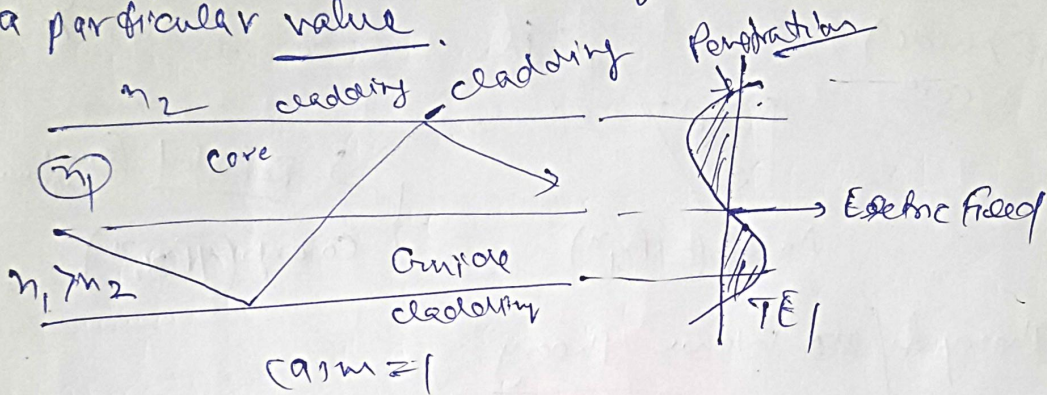 a particular value.
n2 cladding cladding Penetration
core
n1
Electric field
n1 > n2
Guide
cladding
TE1
(a) m = 1